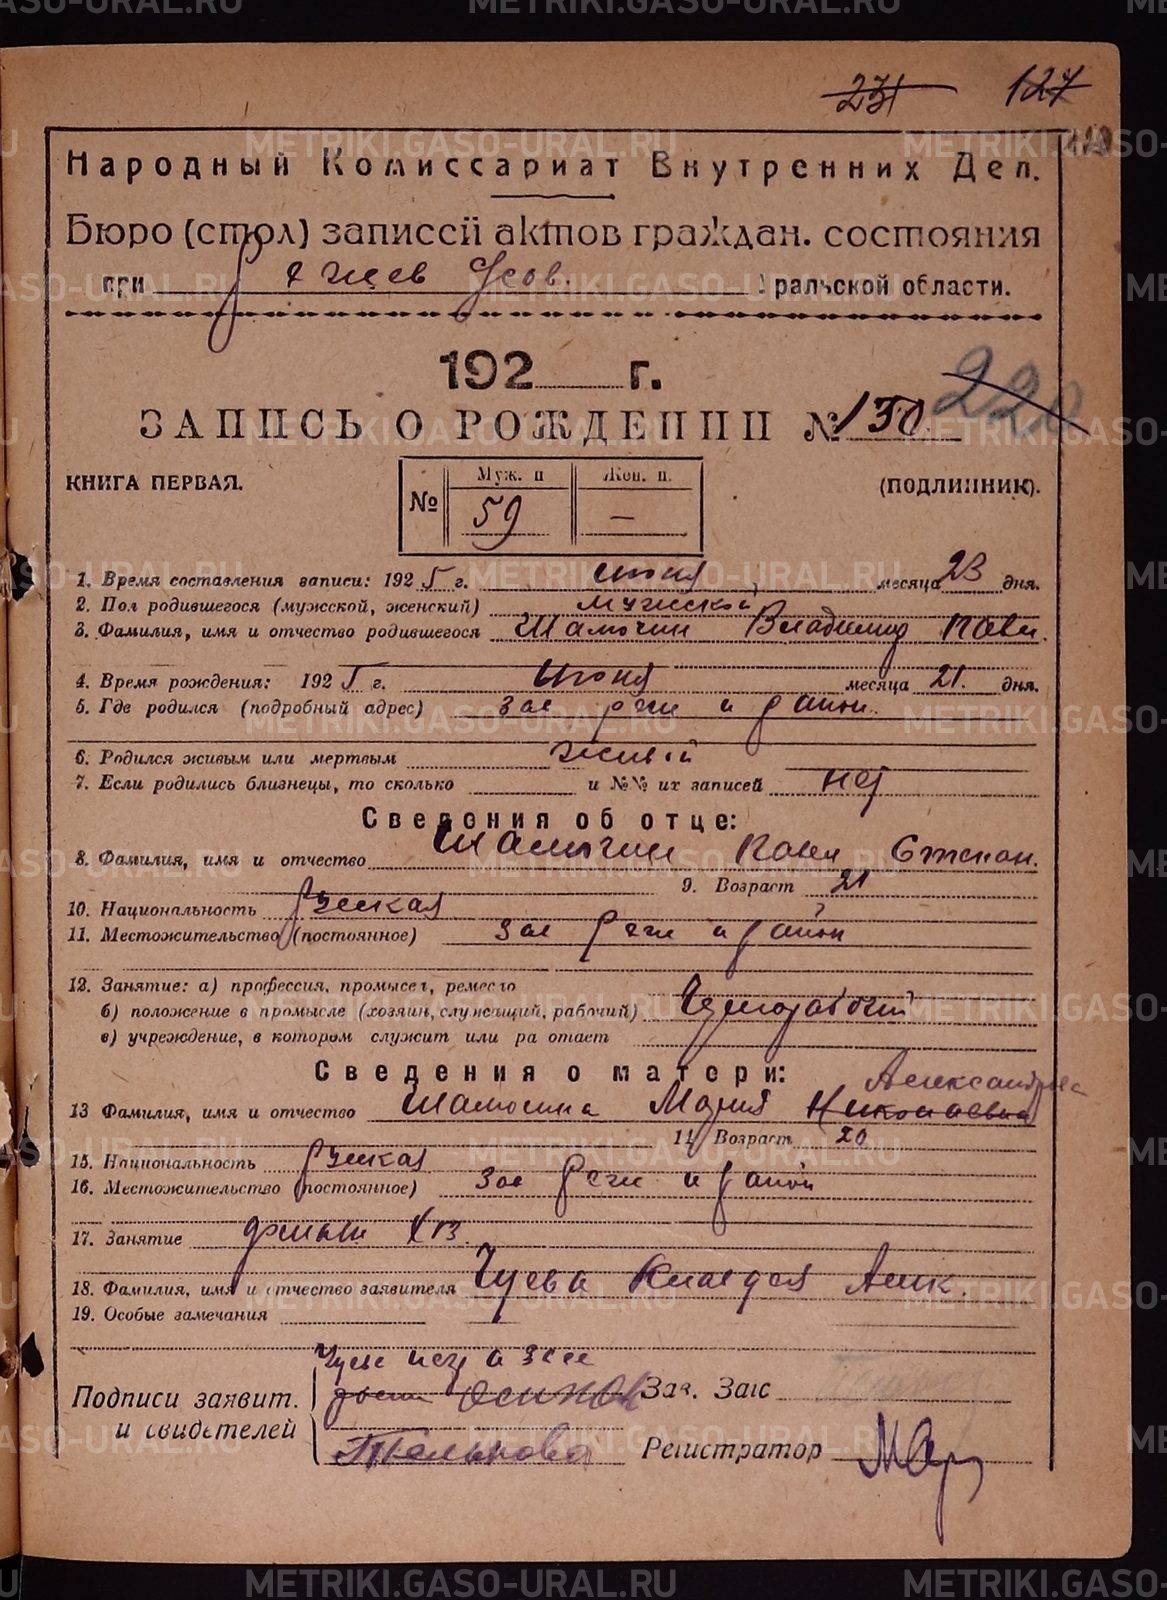 231 127
Народный Комиссариат Внутренних Дел.
Бюро (стол) записей актов граждан. состояния
при Режев Усов. Уральской области.
192 г.
220
ЗАПИСЬ О РОЖДЕНИИ № 130
КНИГА ПЕРВАЯ. (ПОДЛИННИК).
Муж. п Жен. п.
№ 59 —
1. Время составления записи: 1925 г. июня месяца 23 дня.
2. Пол родившегося (мужской, женский) мужской
3. Фамилия, имя и отчество родившегося Шамочин Владимир Павл.
4. Время рождения: 1925 г. июня месяца 21. дня.
5. Где родился (подробный адрес) зас район.
6. Родился живым или мертвым живый
7. Если родились близнецы, то сколько и №№ их записей нет
Сведения об отце:
8. Фамилия, имя и отчество Шамочин Павел Степан.
9. Возраст 21
10. Национальность Русская
11. Местожительство (постоянное) район
12. Занятие: а) профессия, промысел, ремесло
б) положение в промысле (хозяин, служащий, рабочий) Чернорабочий
в) учреждение, в котором служит или работает
Сведения о матери:
Александров
13 Фамилия, имя и отчество Шамочина Мария Николаевна
14 Возраст 20
15. Национальность Русская
16. Местожительство (постоянное) район
17. Занятие
18. Фамилия, имя и отчество заявителя Чуева Клавдия Алек.
19. Особые замечания
Подписи заявит. и свидетелей
Зав. Загс
Тельнова Регистратор Мар
METRIKI.GASO-URAL.RU